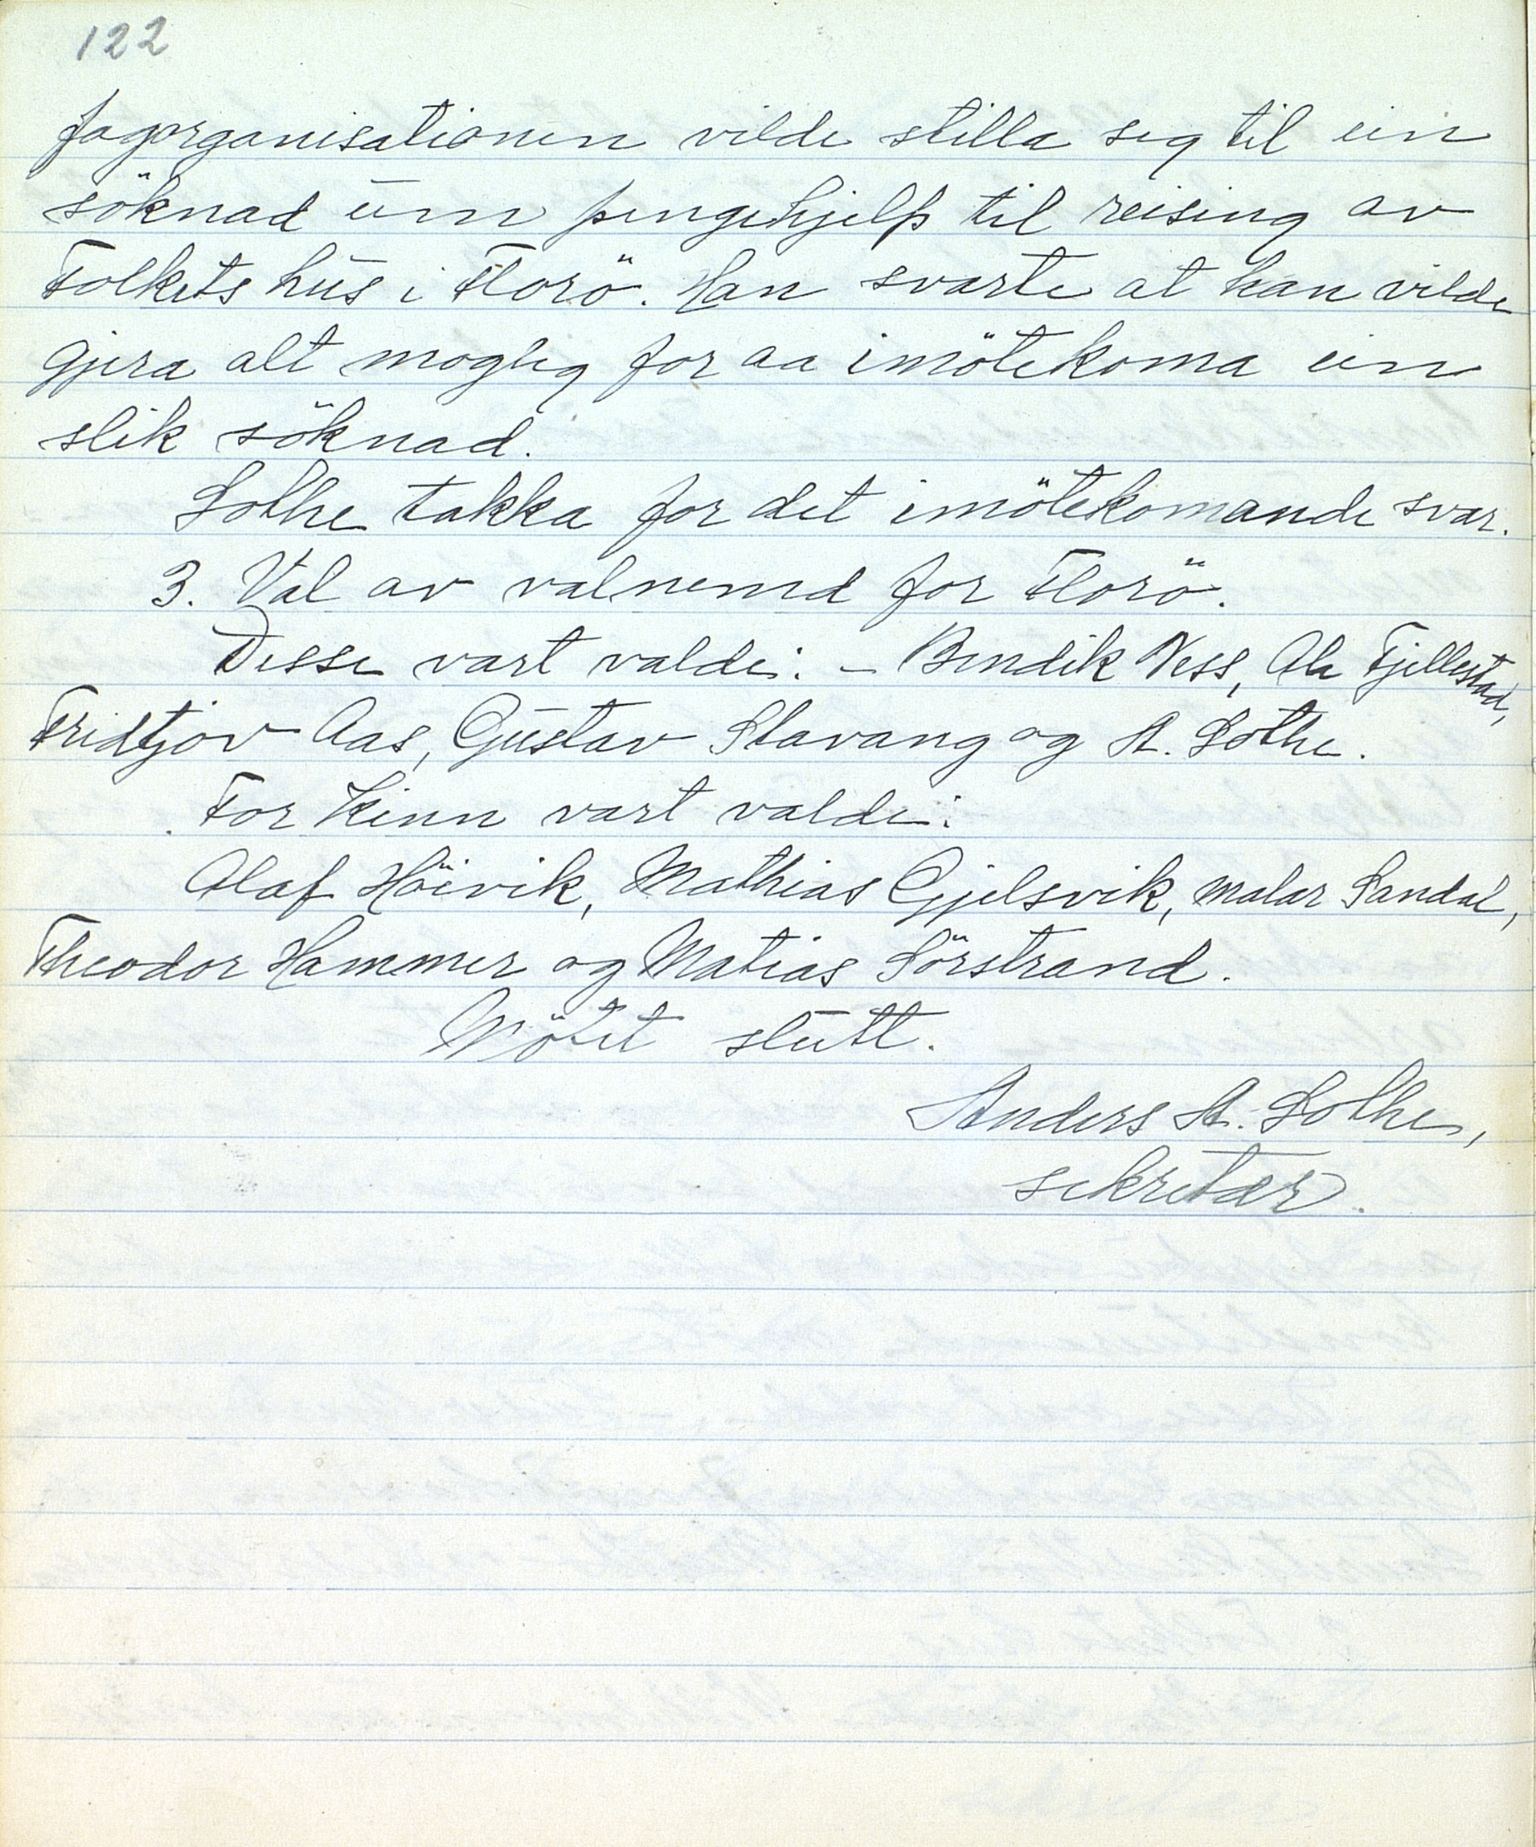 122
fagorganisationen vilde stilla seg til ein
söknad um pengehjelp til reising av
Folkets hus i Florö. Han svarte at han vilde
gjera alt mogleg for aa imötekoma ein
slik söknad.
Lothe takka for det imötekomande svar.
3. Val av valnemd for Florö.
Desse vart valde: - Bendik Ness, Ola Fjellestad,
Fridtjov Aas, Gustav Stavang og A. Lothe.
For Kinn vart valde:
Olaf Höivik, Mathias Gjelsvik, Malar Sandal,
Theodor Hammer og Matias Sörstrand.
Mötet slutt.
Anders A. Lothe,
sekretær.